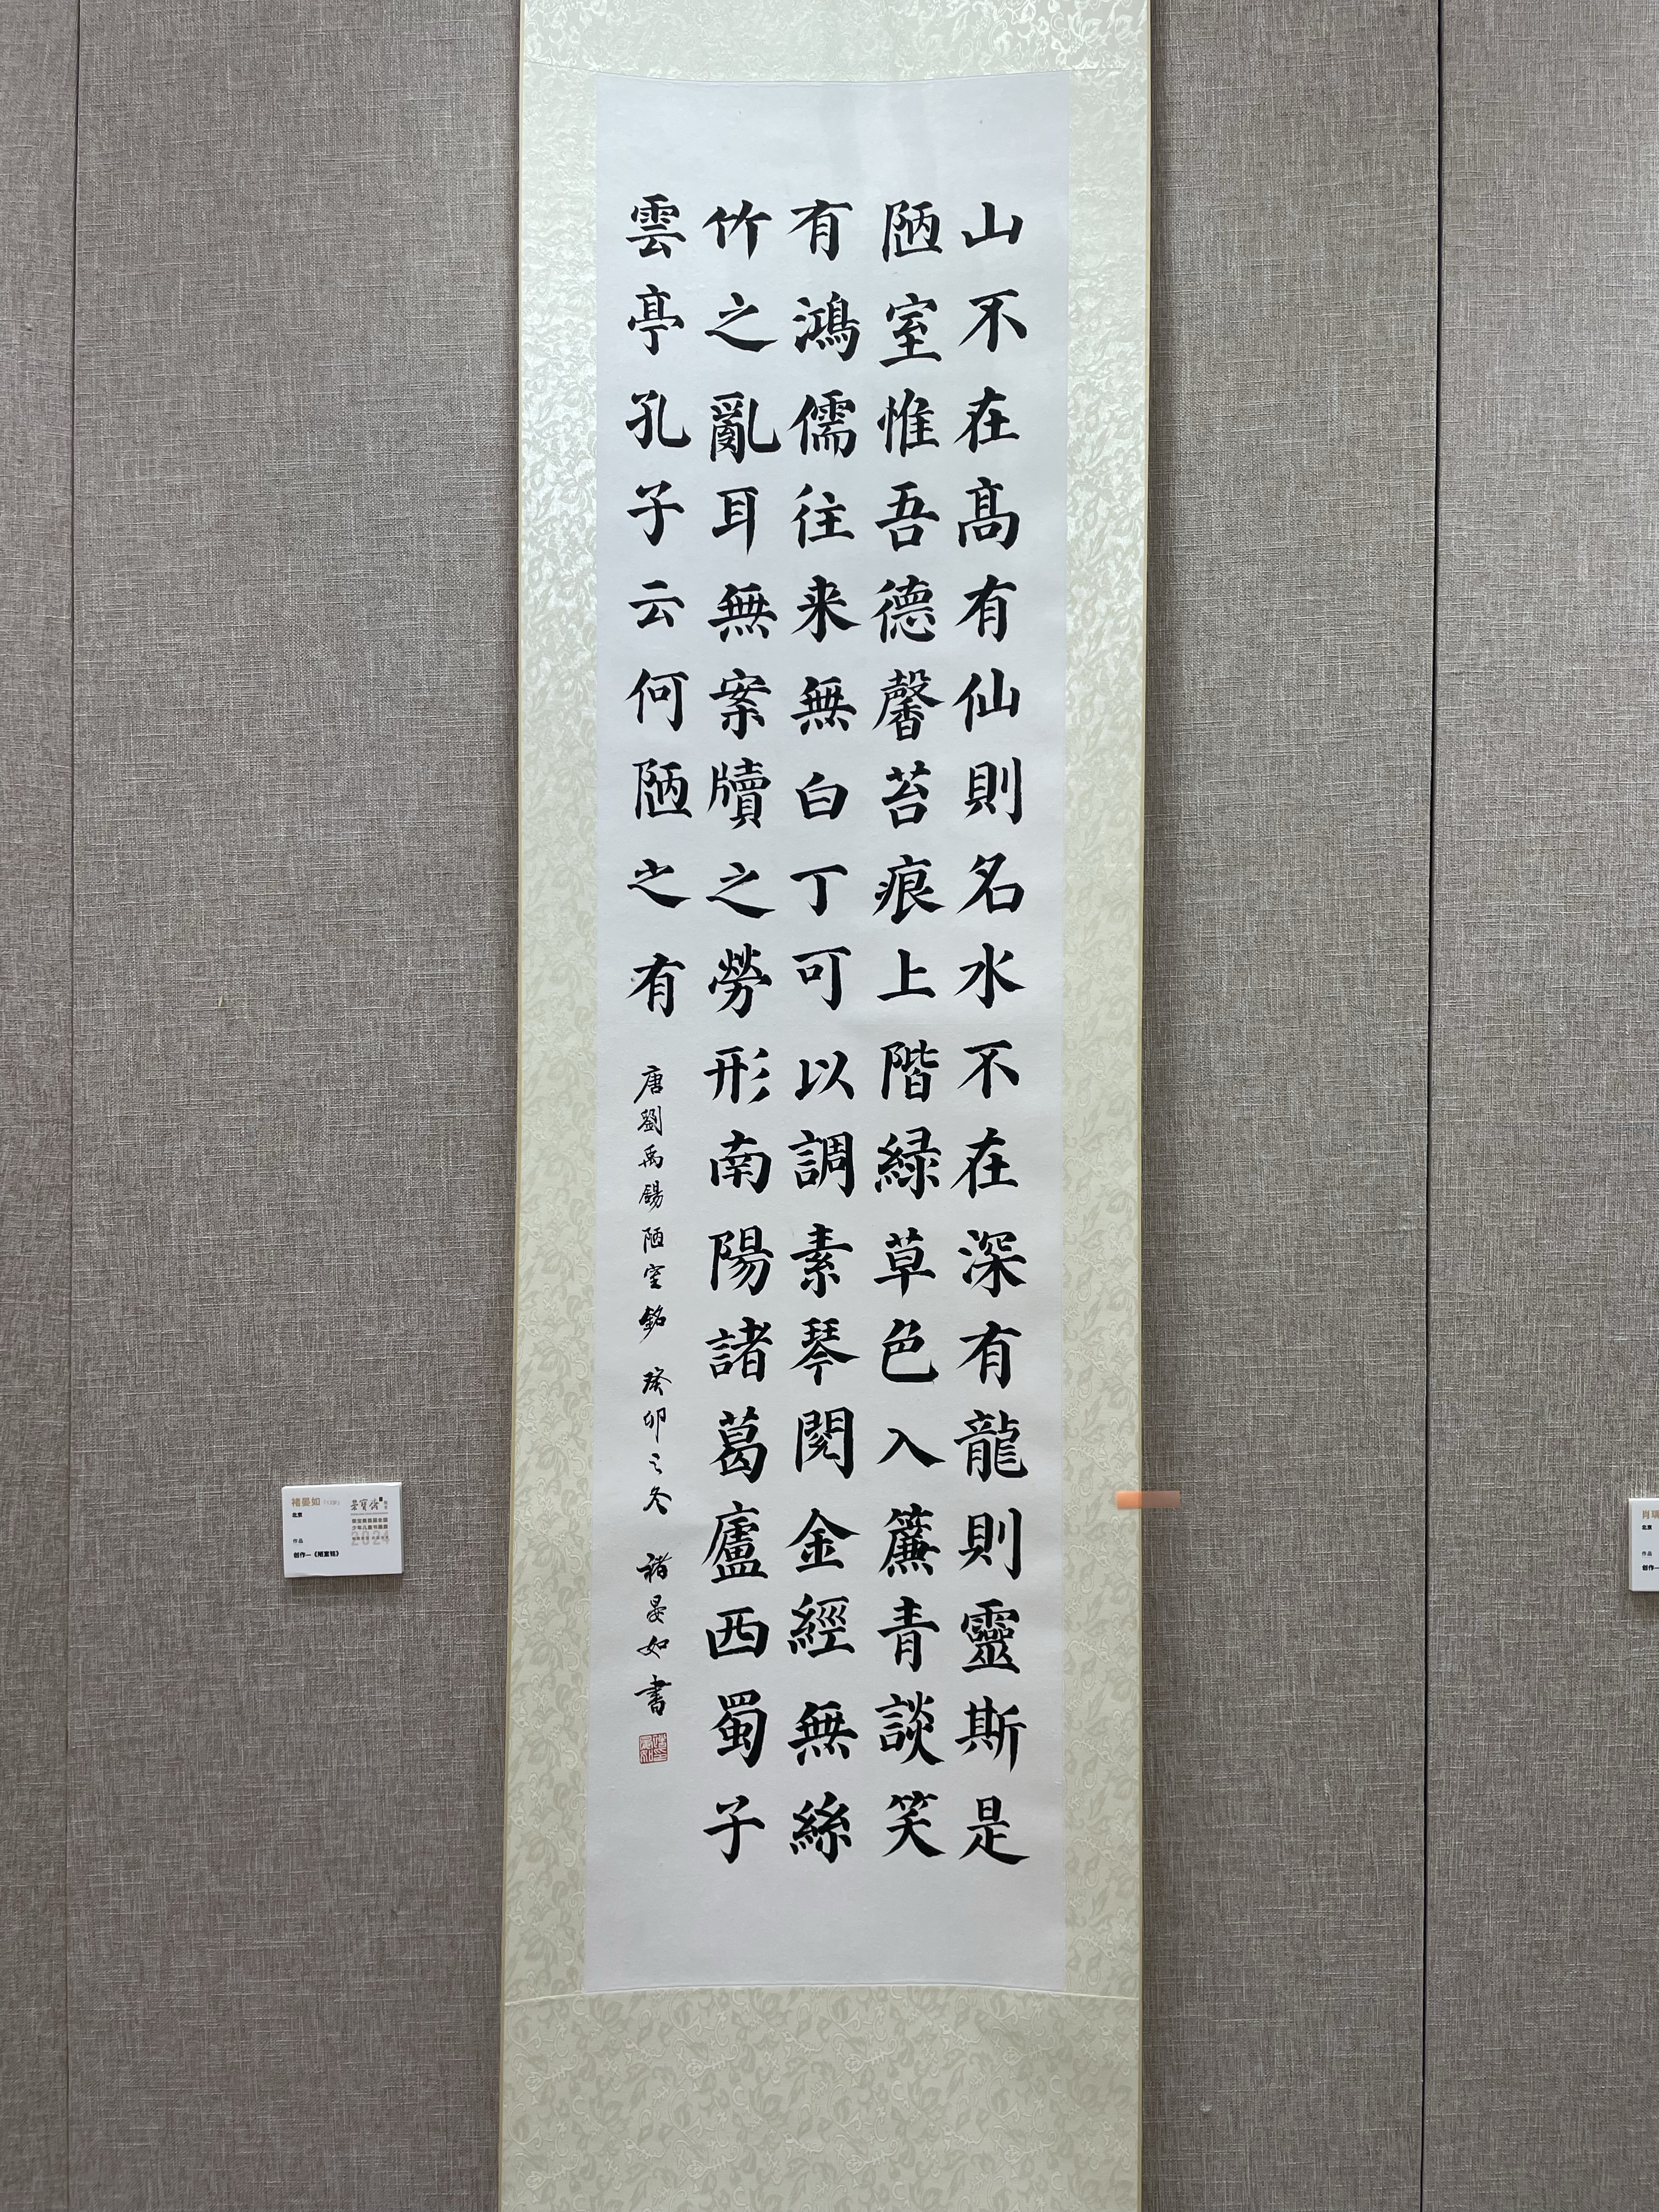 山不在高有仙則名水不在深有龍則靈斯是
陋室惟吾德馨苔痕上階緑草色入簾青談笑
有鴻儒往来無白丁可以調素琴閱金經無絲
竹之亂耳無案牘之勞形南陽諸葛廬西蜀子
雲亭孔子云何陋之有
唐劉禹錫陋室銘 癸卯之冬 褚晏如書
褚晏如
北京
作品
创作—《陋室铭》
榮寶齋
2024
肖
北京
作品
创作—